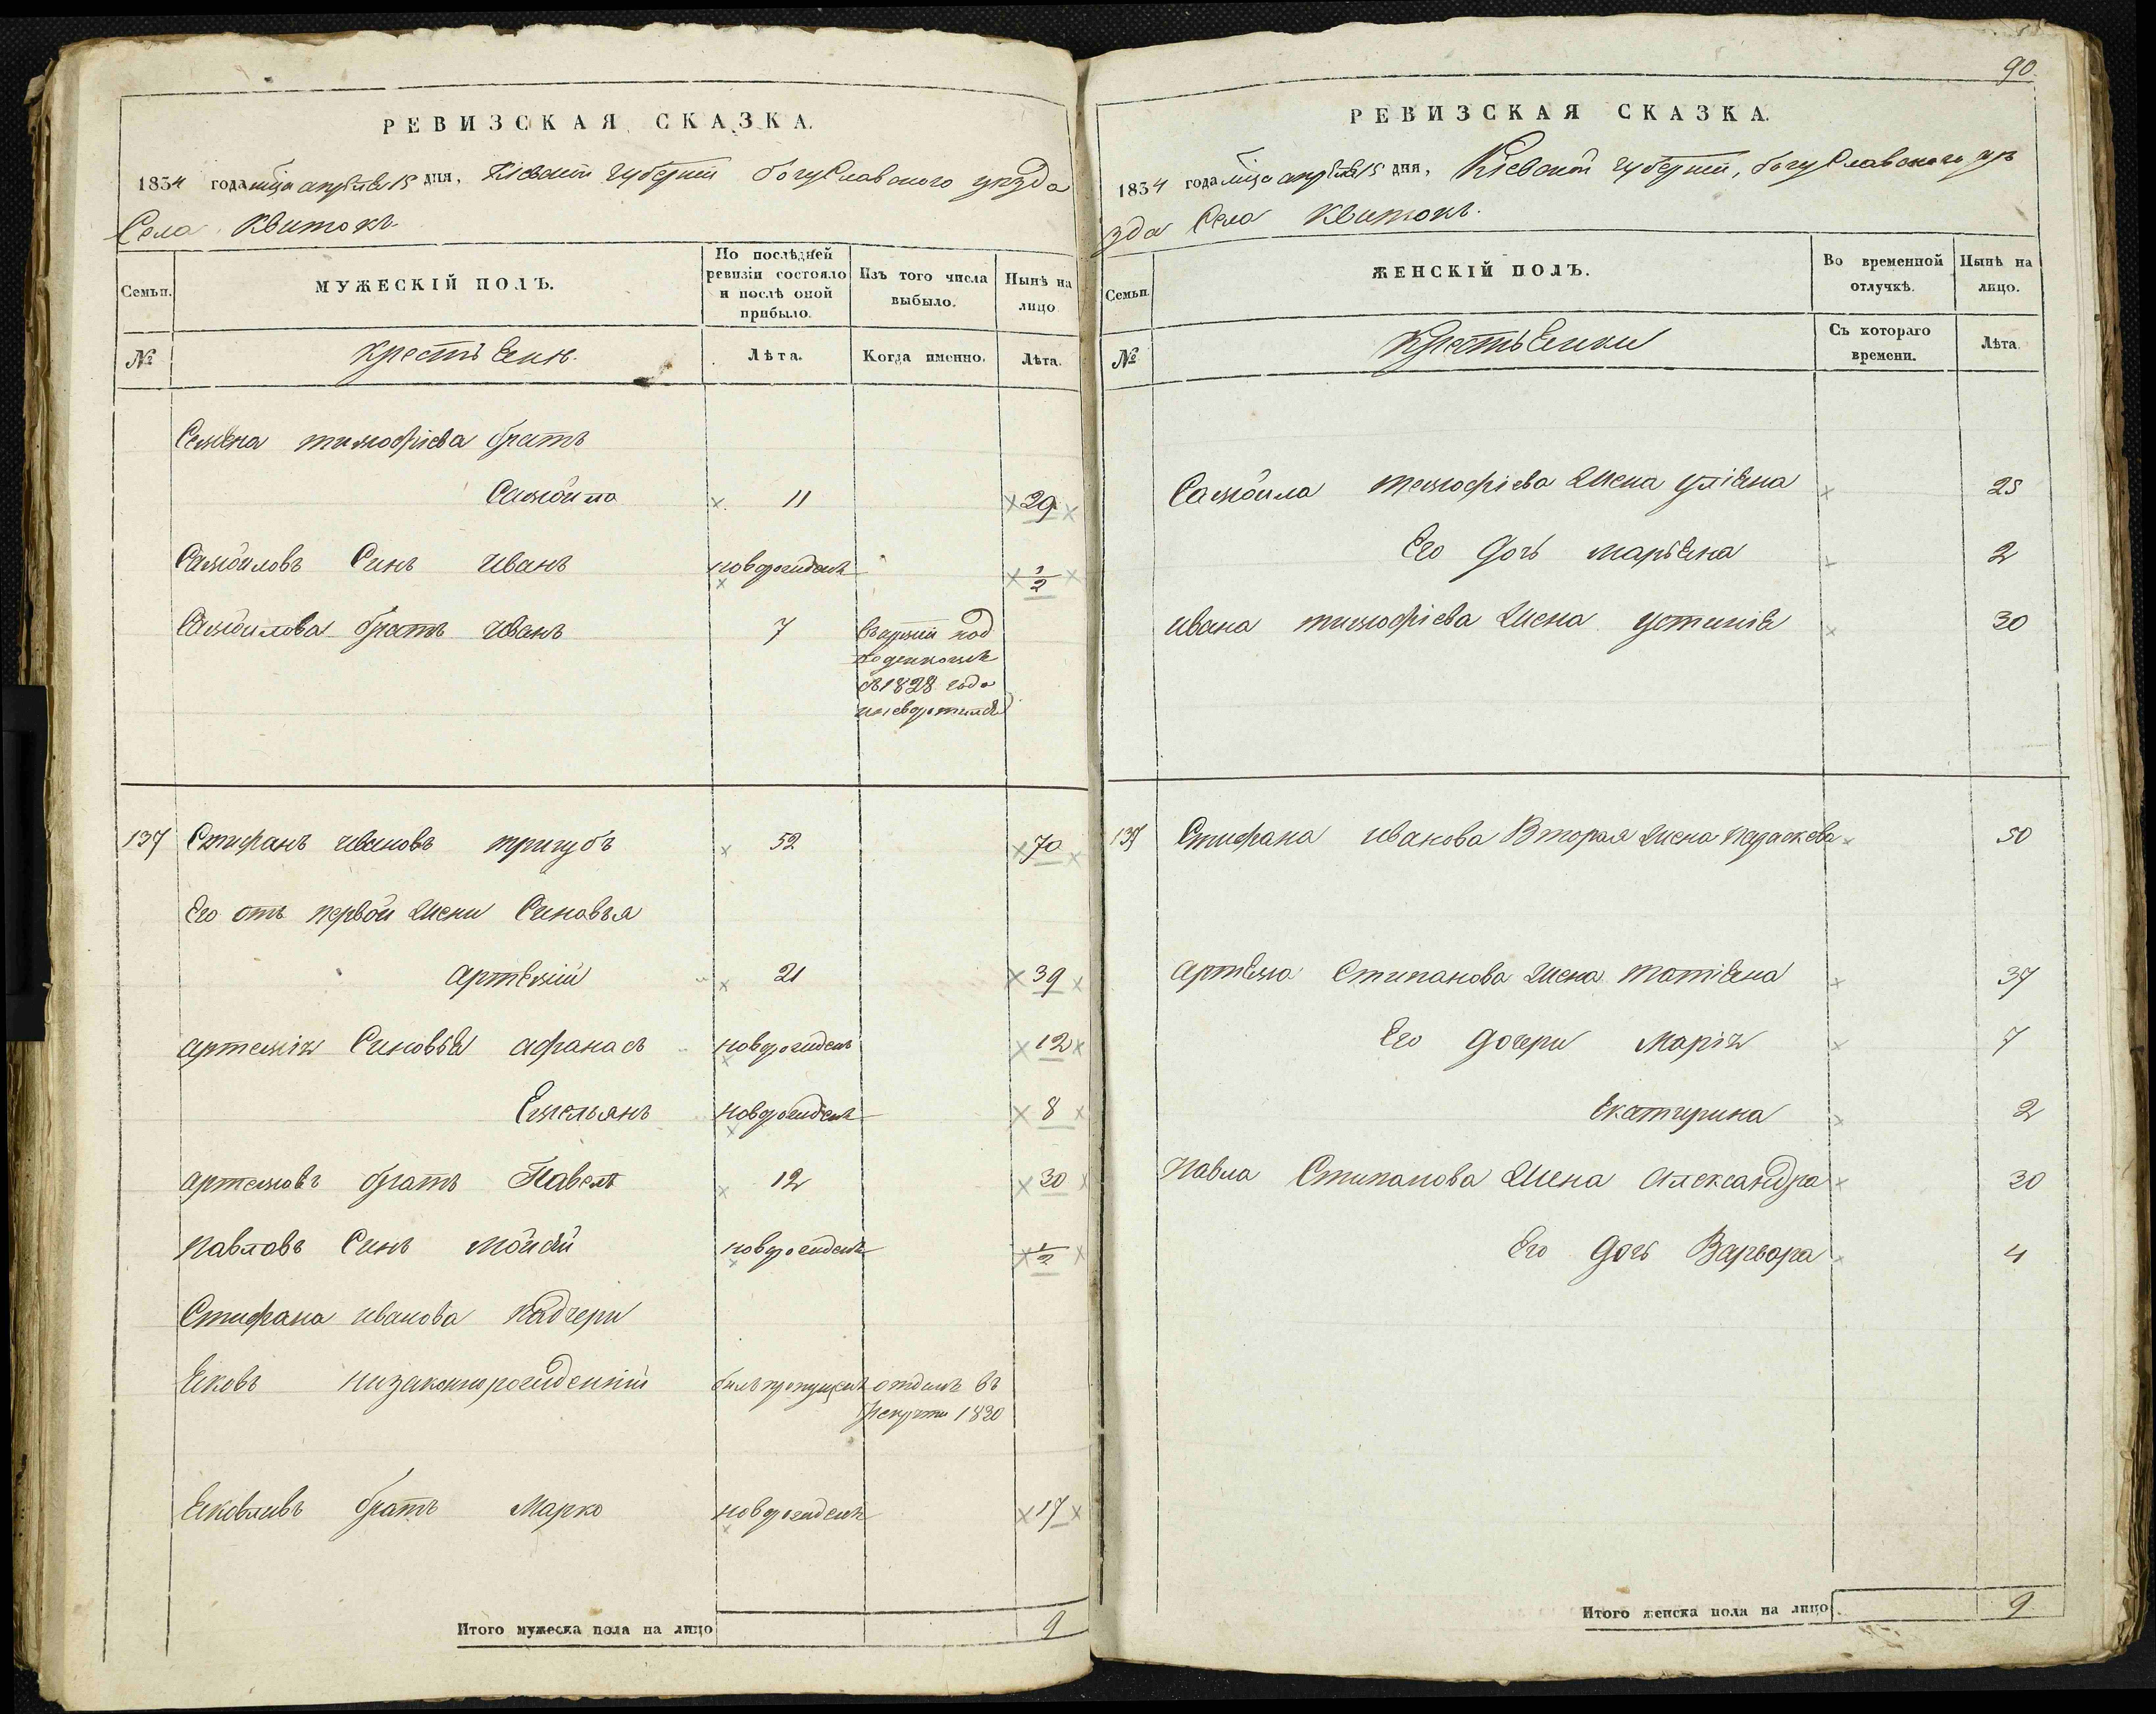 РЕВИЗСКАЯ СКАЗКА.
1834 года мца апреля 15 дня, Кіевской губерніи богуславского уезда
Села Квитокъ.
Семьи.
МУЖЕСКІЙ ПОЛЪ.
По послѣдней ревизіи состояло и послѣ оной прибыло.
Изъ того числа выбыло.
Нынѣ на лицо
№
Крестьяне.
Лѣта.
Когда именно.
Лѣта.
Семена тимофіева братъ
Самойло 11 29
Самойловъ Синъ иванъ новорожденъ 1/2
Самойлова братъ иванъ 7
съ 1828 года
137 Стифанъ ивановъ тригубъ 52 70
Его отъ первой жени Синовья
артемій 21 39
артемія Синовья афанасъ новорожденъ 12
Емельянъ новорожденъ 8
артемовъ братъ Павелъ 12 30
павловъ Синъ мойсей новорожденъ 1/2
Стифана иванова падчери
Яковъ низаконнорожденній билъ пропущенъ отданъ въ
рекруты 1830
Яковливъ братъ Марко новорожденъ 17
Итого мужеска пола на лицо 9
90.
РЕВИЗСКАЯ СКАЗКА.
1834 года мца апреля 15 дня, Кіевской губерніи, богуславского уе
зда Села Квитокъ.
Семьи.
ЖЕНСКІЙ ПОЛЪ.
Во временной отлучкѣ.
Нынѣ на лицо.
№
Крестьянки
Съ котораго времени.
Лѣта.
Самойла тимофіева жена уліяна 25
Его дочь маріяна 2
ивана тимофіева жена устинія 30
137 Стифана иванова Вторая жена параскева 50
артема Стипанова жена татіяна 37
Его дочери Марія 7
Екатирина 2
Павла Стипанова жена Александра 30
Его дочь Варвара 4
Итого женска пола на лицо. 9